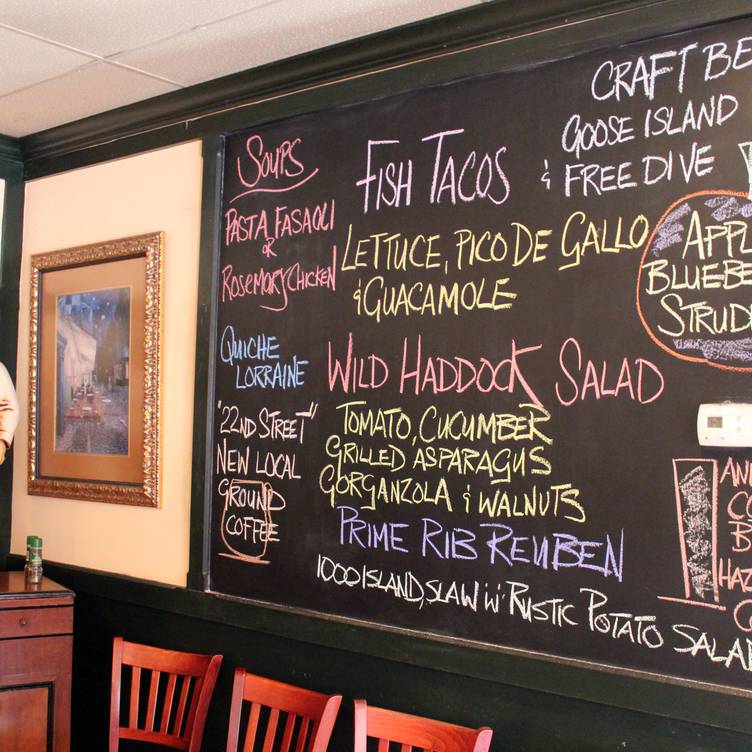 Soups
Pasta Fasaoli
or
Rosemary Chicken
Quiche
Lorraine
"22nd Street"
New Local
Ground
Coffee
Fish Tacos
Lettuce, Pico De Gallo
& Guacamole
Wild Haddock Salad
Tomato, Cucumber
Grilled Asparagus
Gorganzola & Walnuts
Prime Rib Reuben
1000 Island, Slaw w' Rustic Potato Salad
Craft Be
Goose Island
& Free Dive
Appl
Bluebe
Strud
An
Co
B
Haz
Co